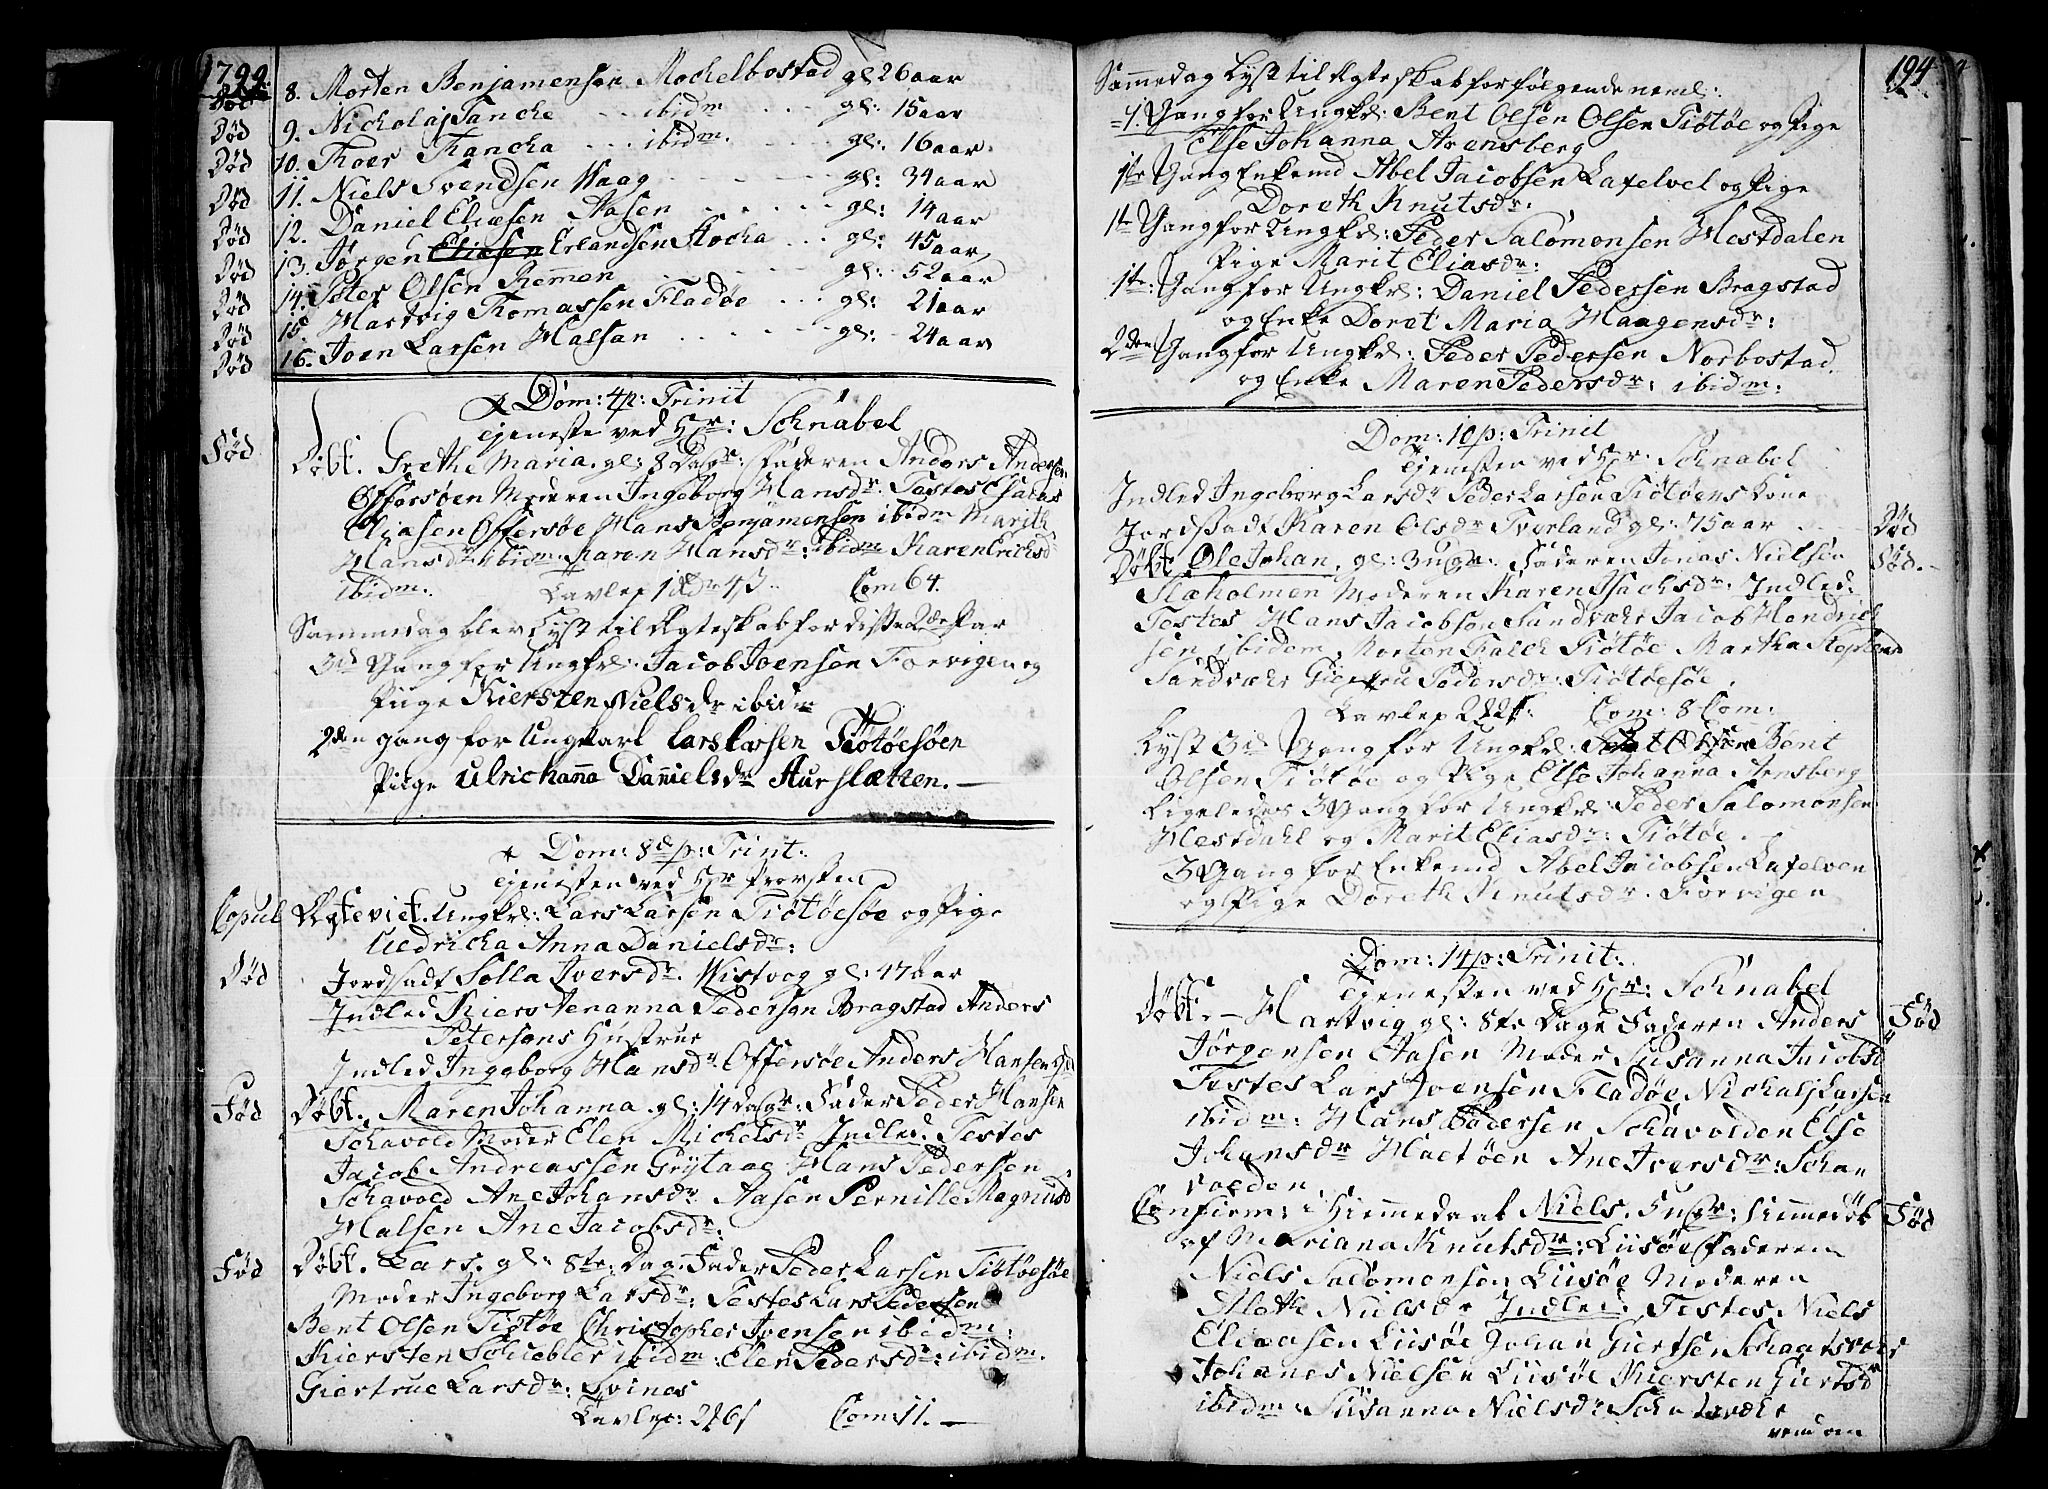 1799
Død 8. Morten Benjamensen Mochelbostad gl: 26 aar
Død 9. Nicholaj Tanche - - ibidm - - - gl: 15 aar
Død 10. Thoer Tancha - - - ibidm. - - - gl: 16 aar
Død 11. Niels Svendsen Waag - - - - - gl: 34 aar
Død 12. Daniel Eliæsen Aasen - - - - - gl: 14 aar
Død 13. Jørgen Eliæsen Erlandsen Stocha - - - gl: 45 aar
Død 14. Peter Olsen Remen - - - - - gl: 52 aar
Død 15. Hartvig Thomassen Fladøe - - - gl: 21 aar
Død 16. Joen Larsen Halsan - - - - - gl: 24 aar
Dom: 4 p: Trinit
Tjeneste ved Hr: Schnabel
Fød Døbt. Grethe Maria. gl: 8 Dage: faderen Anders Andersen
Offersøen Moderen Ingeborg Hansdr: Testes Esaias
Eliasen Offersøe Hans Benjamensen ibidm Marith
Hansdr ibidm Karen Hansdr: ibidm Karen Erichsd
ibidm. Tavlep 1 4 Com 64.
Sammedag blev Lyst til Ægteskab for diste 2de Par
3die Gang for Ungkrl: Jacob Joensen Forvigen og
Piige Kiersten Nielsdr ibidm
2den gang for Ungkarl Lars Larsen Tiøtøesøen
Piige Ulrichanna Danielsdr Aurslætten. —
Dom: 8de p: Trint:
Tjenesten ved Hr Provsten
Copul Ægteviet. Ungkrl: Lars Larsen Tiøtøesøe og Pige
Uldricha Anna Danielsdr:
Død Jordsadt Solla Iversdr. Wistvog gl: 47 aar
Indled Kierstenanna Pedersen Bragstad Anders
Petersens Hustrue
Indled Ingeborg Hansdr Offersøe Anders Hansen
Fød Døbt. Maren Johanna gl: 14 Dage: Fader Peder Hansen
Schavold Moder Elen Michelsdr Indled. Testes
Jacob Andreassen Grÿtaae Hans Pedersen
Schavold Ane Johansdr Aasen Pernille Magnusd
Halsen Ane Jacobsdr:
Fød Døbt. Lars. gl: 8te Dag: Fader Peder Larsen Tiøtøesøe
Moder Ingeborg Larsdr: Testes Lars Pedersen
Bent Olsen Tiøtøe Christopher Ivensen ibidm:
Kiersten Schiebler ibidm: Elen Pedersdr: ibidm.
Giertrue Larsdr: Svines
Tavlep: 2 6 Com: 11. —
194
Sammedag Lyst til Ægteskab for følgende neml:
1. Gang for Ungkrl: Bent Olsen Olsen Tiøtøe og Pige
Else Johanna Arensberg
1te Gang Enkemd Abel Jacobsen Lafelvel og Pige
Doreth Knutsdr:
1te Gang for Ungkrl: Peder Salomonsen Hestdalen
Pige Marit Eliasdr:
1te: Gang for Ungkrl: Daniel Pedersen Bragstad
og Enke Doret Maria Haagensdr:
2den Gang for Ungkrl: Peder Pedersen Norbostad.
og Enke Maren Pedersdr: ibidm:
Dom: 10 p: Trinit
Tjenesten ved Hr: Schnabel
Indled Ingeborg Larsdr Peder Larsen Tiøtøens Kone
Jordsadt Karen Olsdr Tverland gl: 75 aar Død
Døbt Ole Johan. gl: 3 uger: Faderen Jonas Nielsen Fød.
Slæholmen Moderen Karen Isachsdr: Indled.
Testes Hans Jacobsen Sandvær Jacob Hendrich
sen ibidem. Morten Falch Tiøtøe Martha Stephensd
Sandvær Pedersdr: Tiøtøesøe.
Tavlep Com: 8 Com:
Lyst 3die Gang for Ungkrl: Bent
Olsen Tiøtøe og Pige Else Johanna Arnsberg
Ligeledes 3 Gang for Ungkrl: Peder Salomonsen
Hestdahl og Marit Eliasdr: Tiøtøe.
3 Gang for Enkemd Abel Jacobsen Lafelven
og Pige Doreth Knutsdr. Forvigen
Dom: 14 p: Trinit:
Tjenesten ved Hr: Schnabel
Døbt. — Hartvig gl: 8te Dage Faderen Anders Fød
Jørgensen Aasen Moder Susanna Jacobsd
Testes Lars Ivensen Fladøe Nicholaj Larsen
ibidm: Hans Pedersen Schavolden Else
Johansdr Hæstøen Ane Iversdr: Scha
volden.
Confirm: Hiemmedaab Niels. 5 Uger: hiemmedøbt Fød
af Mariana Knutsdr: Liisøe Faderen
Niels Salomonsen Liisøe Moderen
Aleth Nielsdr Indled. Testes Niels
Eliæsen Liisøe Johan Giertsen
Johanes Nielsen Liisøe Kiersten Giertsd
ibidm Susanna Nielsdr
vend om